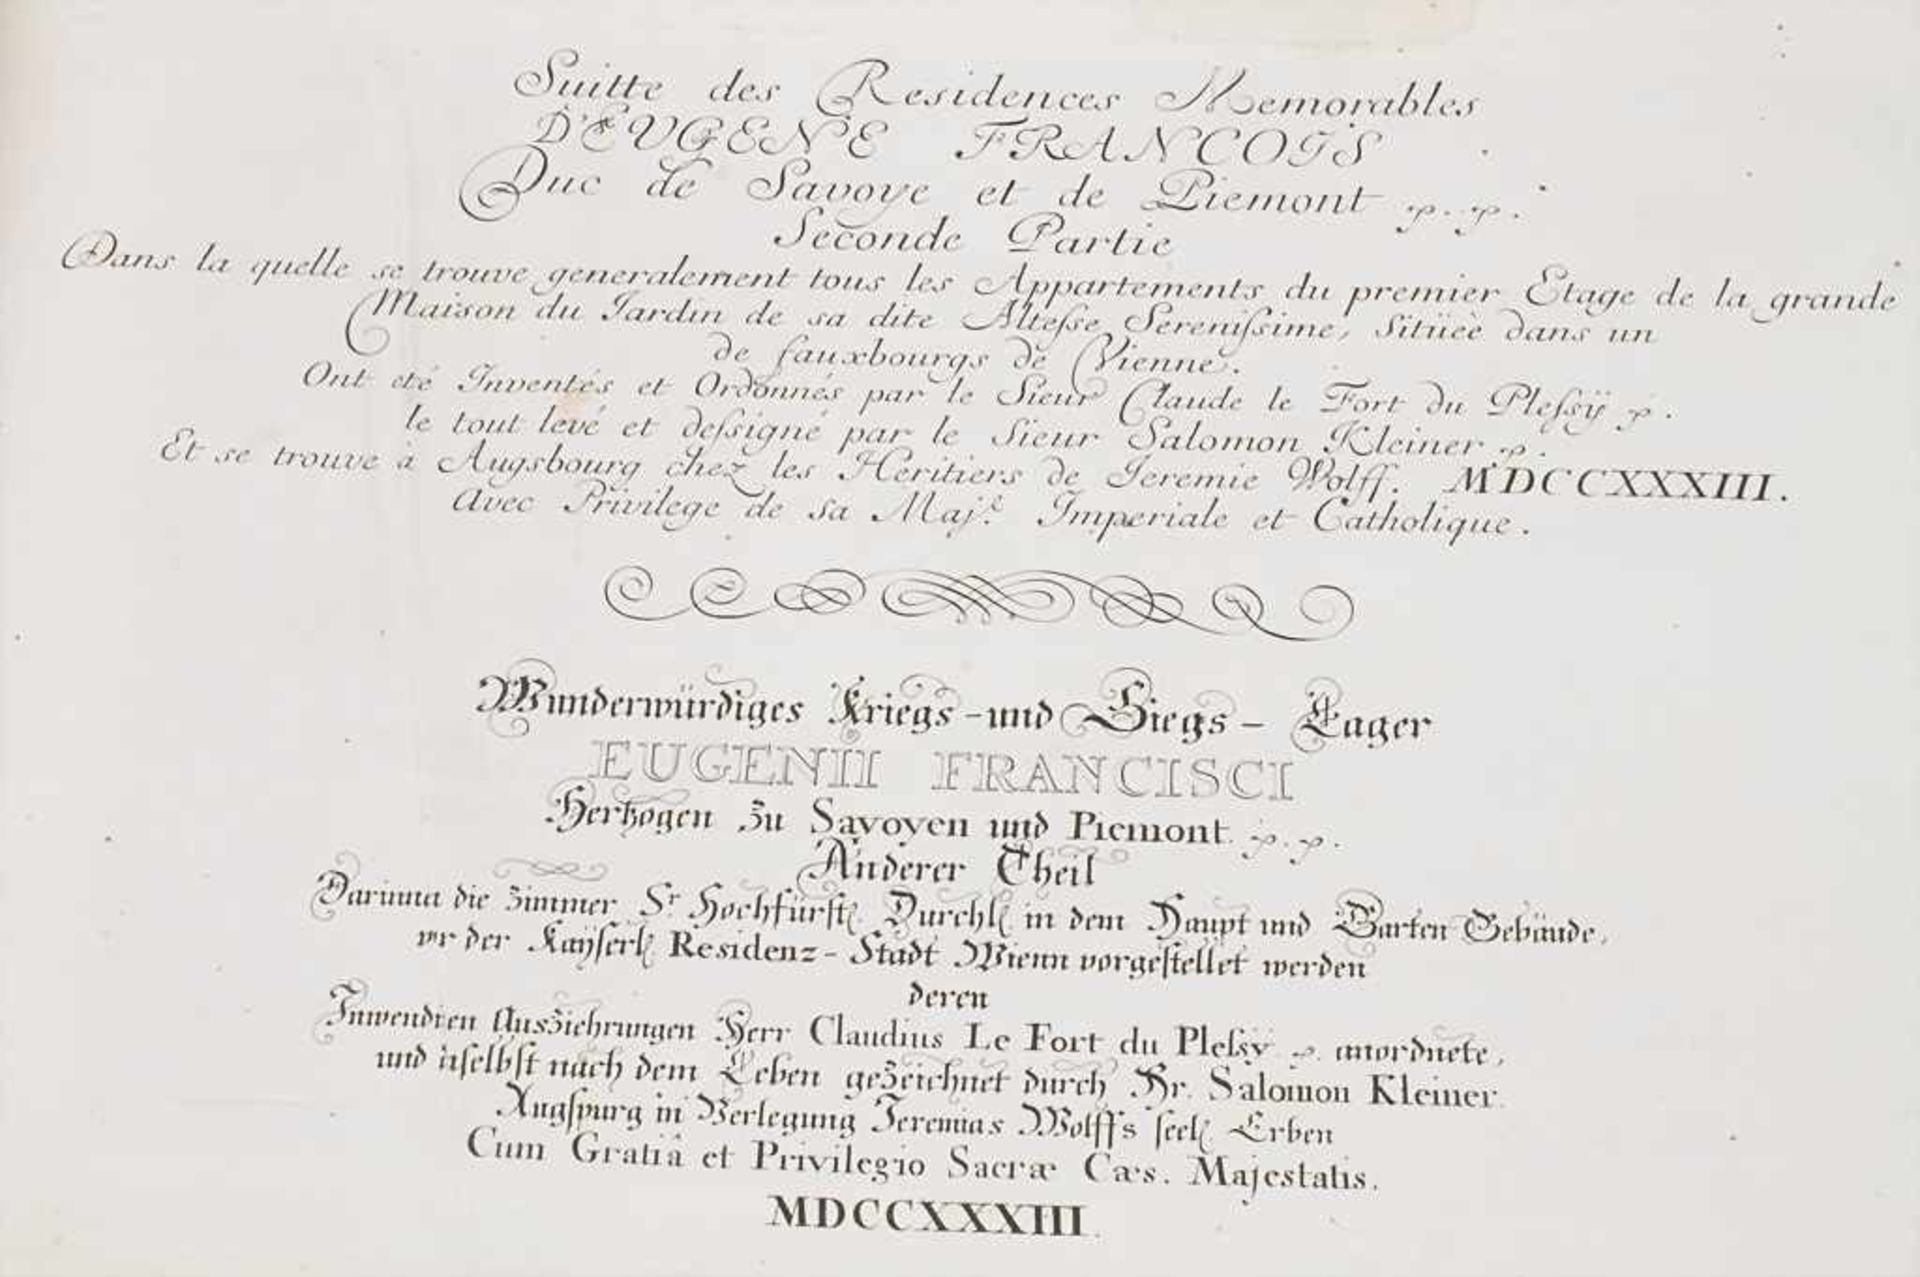 Suitte des Residences Memorables
D'EUGENE FRANCOIS
Duc de Savoye et de Piemont p. p.
Seconde Partie
Dans la quelle se trouve generalement tous les Appartements du premier Etage de la grande
Maison du Jardin de sa dite Altesse Serenissime, sitüeè dans un
de fauxbourgs de Vienne.
Ont eté Inventés et Ordonnés par le Sieur Claude le Fort du Plessÿ p.
le tout levé et dessigné par le Sieur Salomon Kleiner p.
Et se trouve à Augsbourg chez les Heritiers de Jeremie Wolff. MDCCXXXIII.
Avec Privilege de sa Maj.te Imperiale et Catholique.
Wunderwürdiges Kriegs-und Siegs-Lager
EUGENII FRANCISCI
Hertzogen zu Savoyen und Piemont. p. p.
Anderer Theil
Darinna die Zimmer Sr Hochfürstl. Durchl. in dem Haupt und Garten Gebäude,
vor der Kaÿserl. Residenz-Stadt Wienn vorgestellet werden
deren
Inwendien Ausziehrungen Herr Claudius Le Fort du Plessy p. anordnete,
und daselbst nach dem Leben gezeichnet durch Hr. Salomon Kleiner.
Augspurg in Verlegung Jeremias Wolffs seel. Erben
Cum Gratiâ et Privilegio Sacræ Cæs. Majestatis.
MDCCXXXIII.